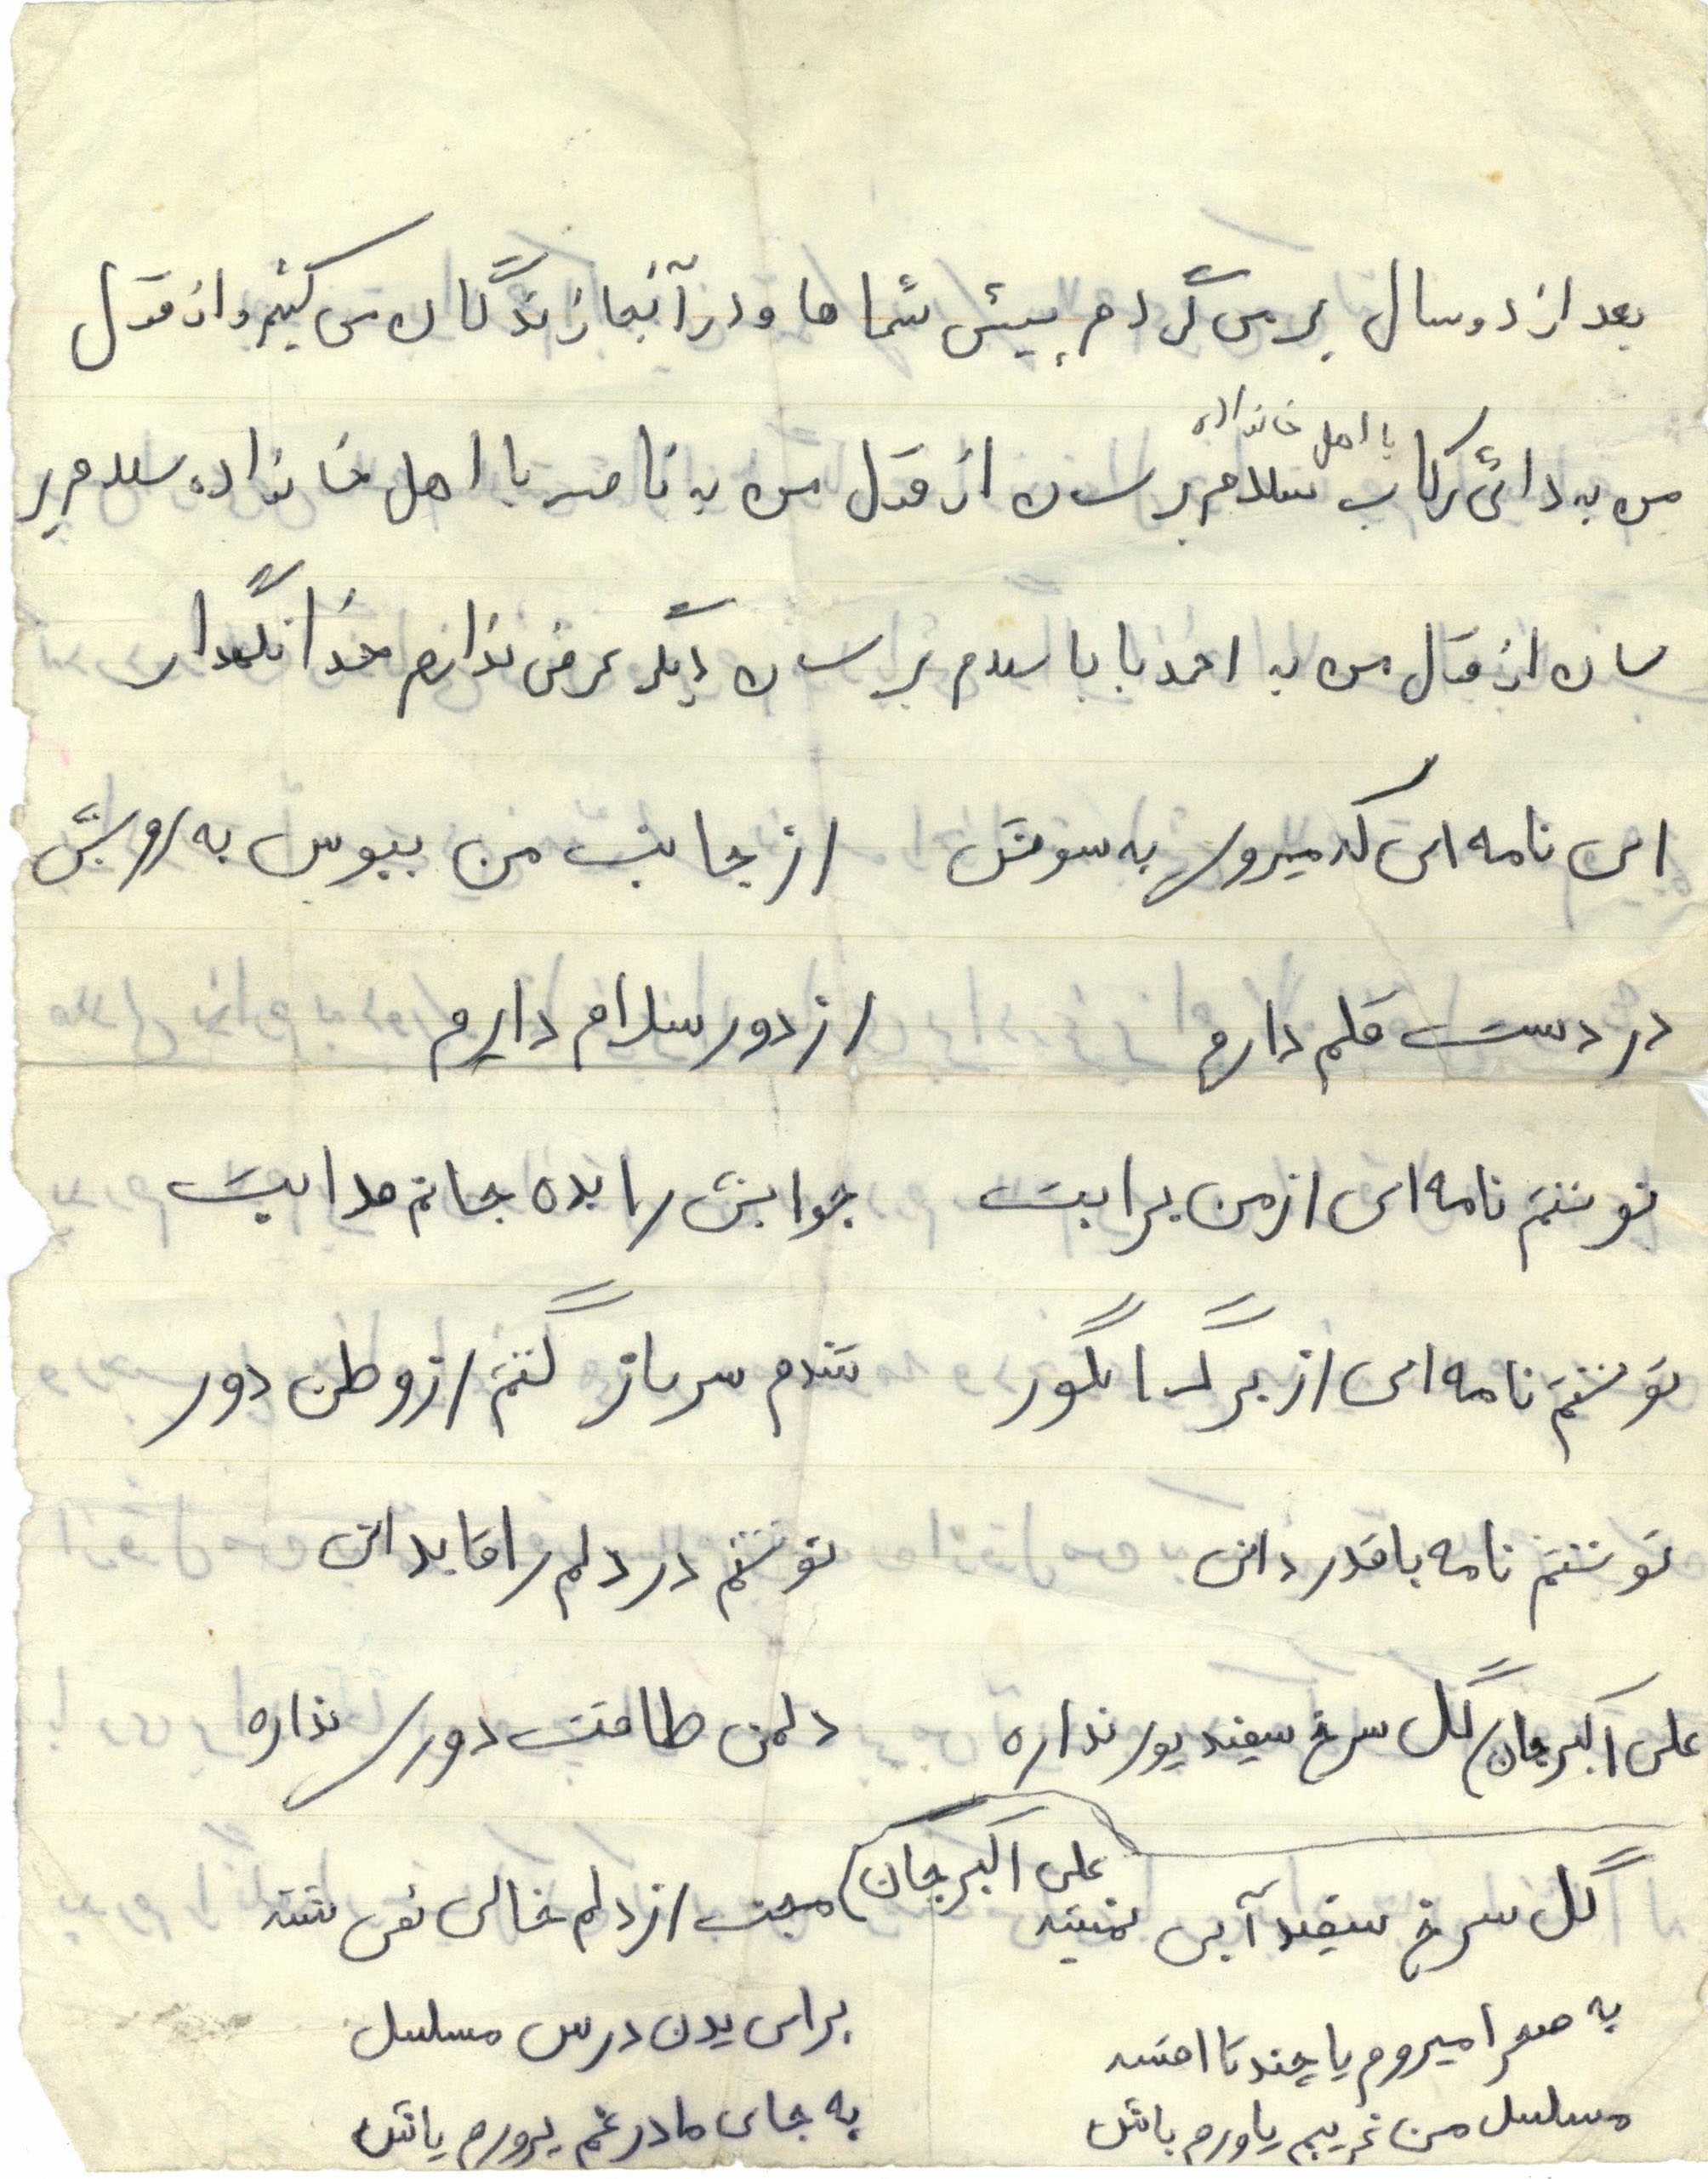 بعد از دو سال بر می گردم پیش شما ها و در آنجا زندگان می کنیم و از قول
با اهل خانواده
من به دائی رکاب سلام برسان از قول من به ناصر با اهل خانواده سلام بر
سان از قول من به احمد بابا سلام برسان دیگر عرض ندارم خدا نگهدار
ای نامه ای که میروی به سویش از جانب من ببوس به رویش
در دست قلم دارم از دور سلام دارم
نوشتم نامه ای از من برایت جوابش را بده جانم فدایت
نوشتم نامه ای از برگ انگور شدم سرباز گشتم از وطن دور
نوشتم نامه با قدر دانی نوشتم درد دلم را تا بدانی
علی اکبر جان گل سرخ سفید پور نداره دلمن طاقت دوری نداره
گل سرخ سفید آبی نمیشه علی اکبر جان محبت از دلم خالی نمی شه
به صحرا میروم با چند تا افسر برای یدن درس مسلسل
مسلسل من غریبم یاورم باش به جای مادر غم پرورم باش